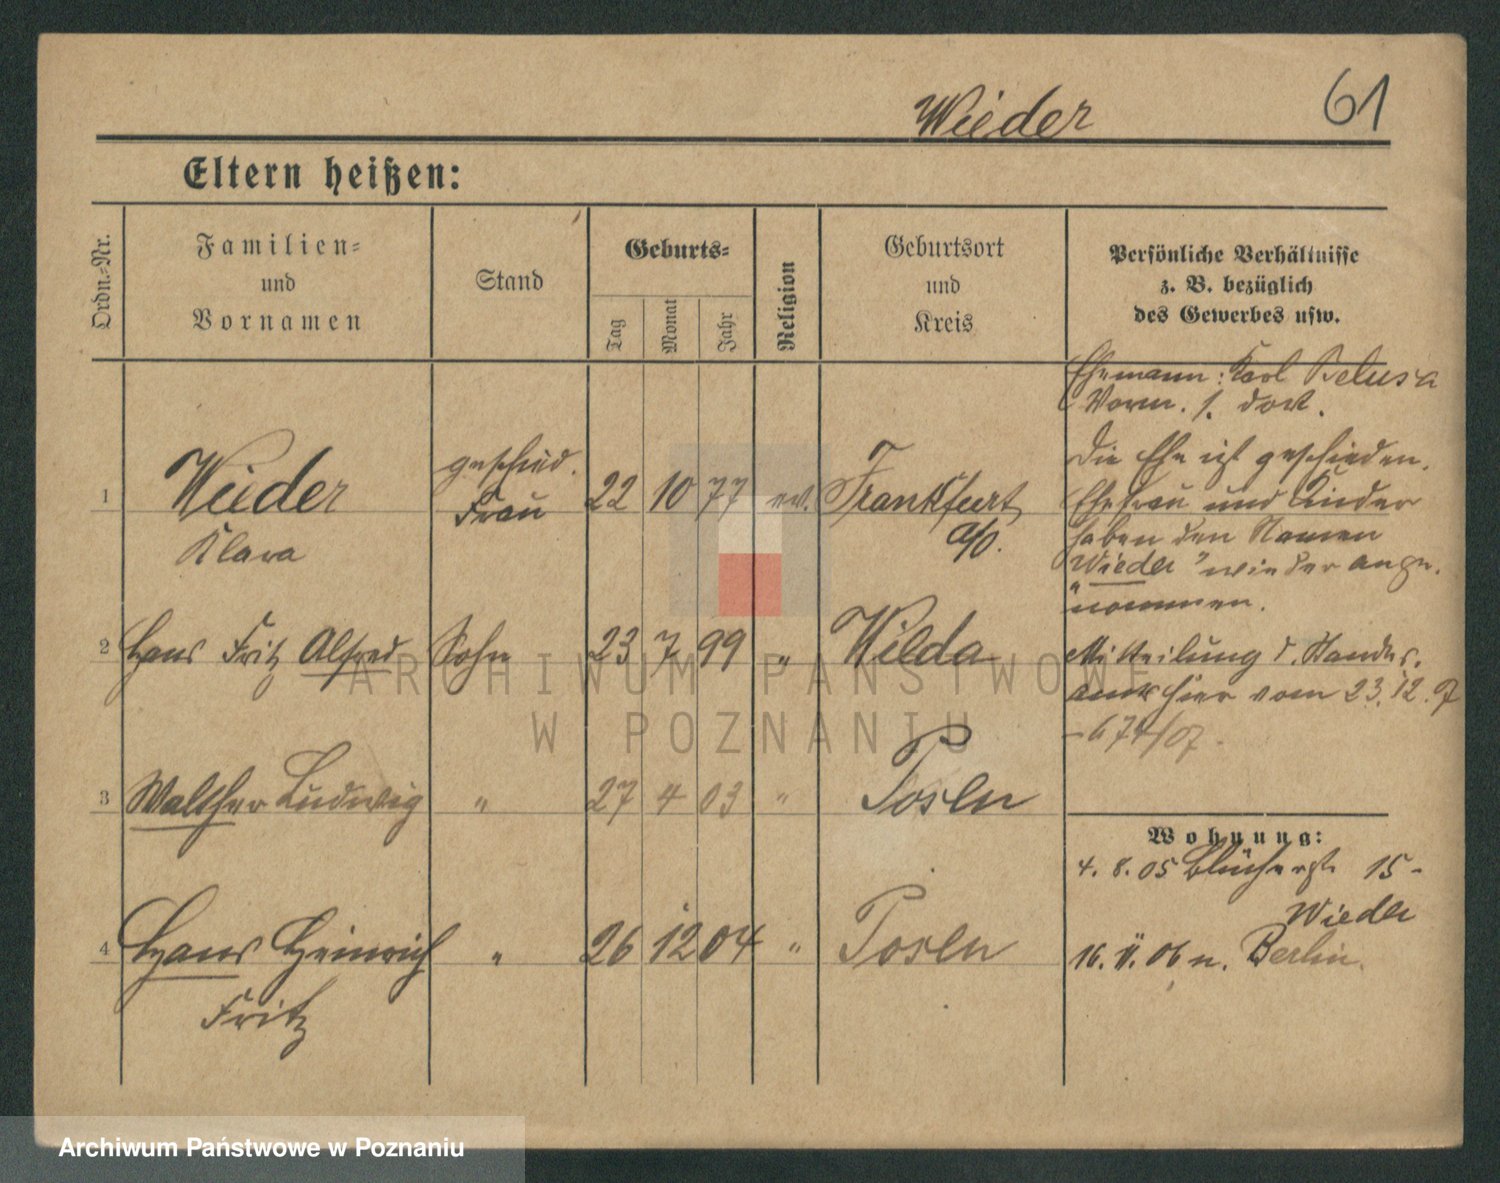 61
Wieder
Eltern heißen:
Ordn.-Nr.
Familien-
und
Vornamen
Stand
Geburts-
Tag
Monat
Jahr
Religion
Geburtsort
und
Kreis
Persönliche Verhältnisse
z. B. bezüglich
des Gewerbes usw.
Ehemann: Karl Belusa
Vorm. s. dort.
Die Ehe ist geschieden.
Ehefrau und Kinder
haben den Namen
"Wieder" wieder ange-
nommen.
Mitteilung d. Standes-
amts hier vom 23.12.07
-674/07.
1 Wieder geschied. Frau 22 10 77 ev. Frankfurt a/O.
Klara
2 Hans Fritz Alfred Sohn 23 7 99 " Wilda
3 Walther Ludwig " 27 4 03 " Posen
4 Hans Heinrich " 26 12 04 " Posen
Fritz
Wohnung:
4. 8. 05 Blücherst. 15-
Wieder
16. II. 06 n. Berlin.
ARCHIWUM PAŃSTWOWE
W POZNANIU
Archiwum Państwowe w Poznaniu